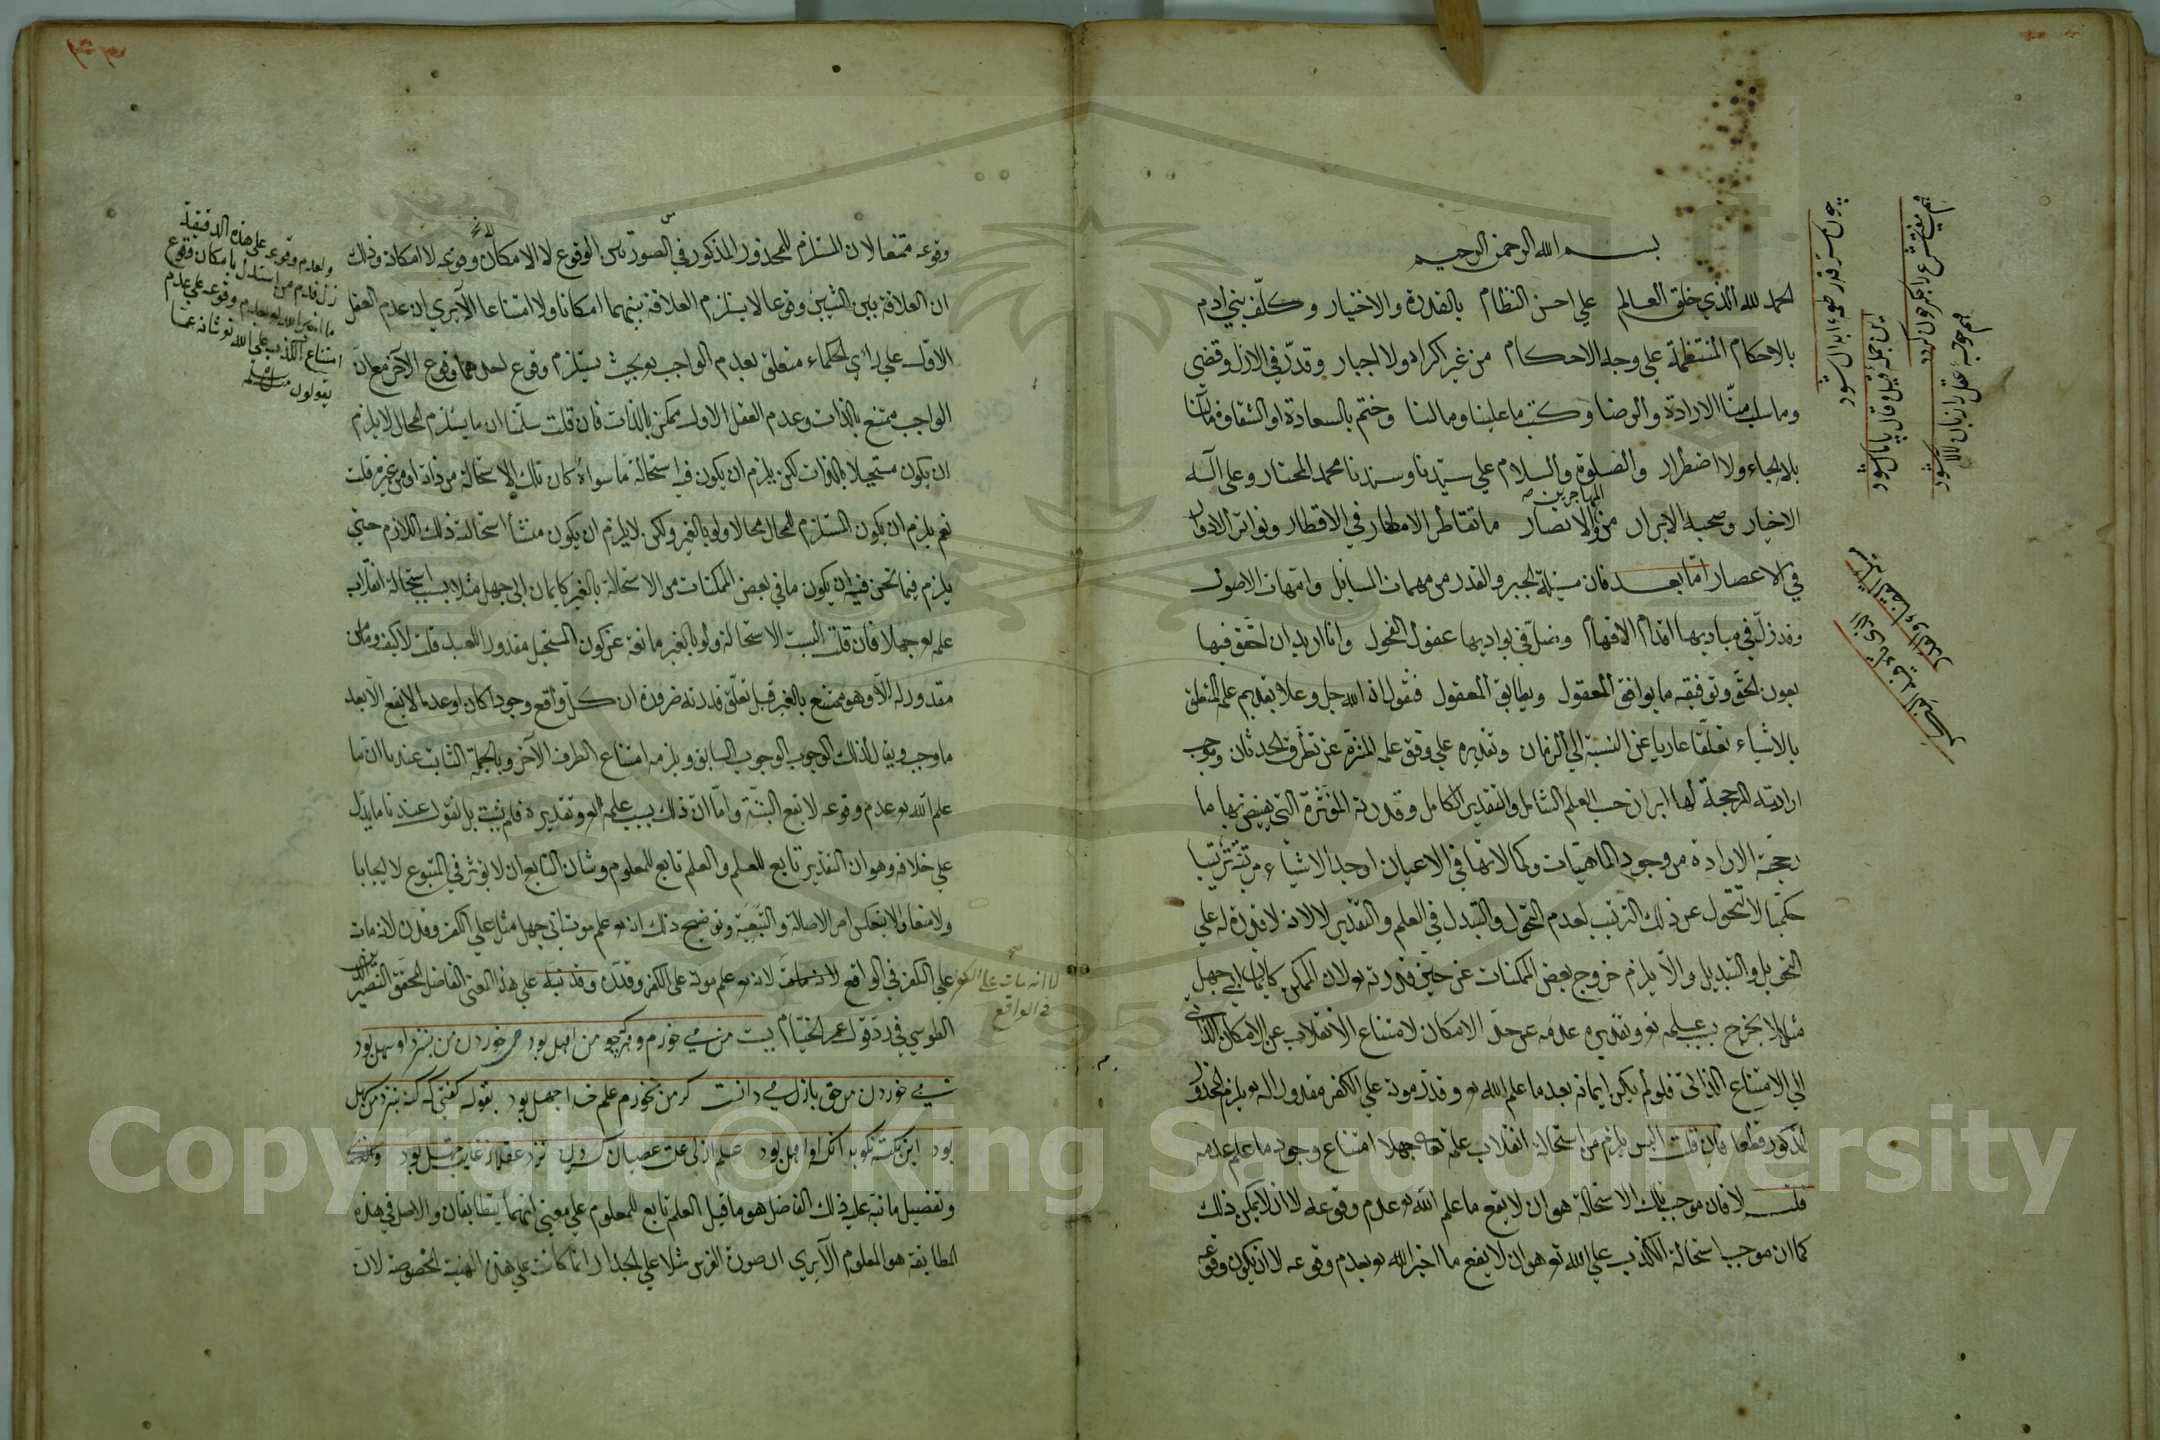 بسم الله الرحمن الرحيم
الحمد لله الذي خلق العالم علي احسن النظام بالقدرة والاختيار وكلّف بني ادم
بالاحكام المنتظمة علي وجه الاحكام من غير اكراه ولا اجبار وقدّر في الازل وقضي
منّا الارادة والرضا وكتب ما علينا وما لنا وختم بالسعادة او الشقاوة مآلنا
بلا الجاء ولا اضطرار والصلوة والسلام علي سيدنا وسندنا محمد المختار وعلي آله
المهاجرين
الاخيار وصحبه الابرار من والانصار ما تقاطر الامطار في الاقطار وتواتر الادوار
في الاعصار اما بعد فان مسئلة الجبر والقدر من مهمات المسايل وامهات الاصول
وقد زلّ في مباديها اقدام الافهام وضلّ في بواديها عقول الفحول وانا اريد ان احقق فيها
بعون الحق وتوفيقه ما يوافق المعقول ويطابق المنقول فنقول ان الله جل وعلا بقديم علمه المتعلق
بالاشياء تعلّقا عاريا عن النسبة الي الزمان وتقديره علي وفق علمه المنزه عن تطرق الحدثان وبموجب
ارادته المرجحة لها ابراز حسب العلم الشامل والتقدير الكامل وقدرته المؤثرة التي يفيض بها ما
رجحته الارادة من وجود الماهيات وكمالاتها في الاعيان اوجد الاشياء مرتبة ترتيبا
حكميا لا تتحول عن ذلك الترتيب لعدم التحول والتبدل في العلم والتقدير لا لانه لا قدرة له علي
التحويل والتبديل والا يلزم خروج بعض الممكنات عن حيّز قدرته تعو لان الممكن كايمان ابي جهل
مثلا لا يخرج بسبب علمه تعو وتقديره عدمه عن حدّ الامكان لامتناع الانقلاب عن الامكان الذاتي
الي الامتناع الذاتي فلو لم يكن ايمانه بعد ما علم الله تعو وقدّر موته علي الكفر مقدورا له تعو يلزم المحذور
المذكور قطعا فان قلت اليس يلزم من استحالة انقلاب علمه تعا جهلا امتناع وجود ما علم عدمه
قلت لا فان موجب تلك الاستحالة هو ان لا يقع ما علم الله تعو عدم وقوعه لا ان لا يمكن ذلك
كما ان موجب استحالة الكذب علي الله تعو هو ان لا يقع ما اخبر الله تعو بعدم وقوعه لا ان يكون وقوعه
وقوعه ممتنعا لان المستلزم للمحذور المذكور في الصورتين الوقوع لا الامكان وقوعه لا امكانه وذلك
ان العلاقة بين الشيئين وقوعا لا يستلزم العلاقة بينهما امكانا ولا امتناعا الا يري ان عدم العقل
الاول علي رأي الحكماء متعلق بعدم الواجب بحيث يستلزم وقوع احدهما وقوع الآخر مع ان
الواجب ممتنع بالذات وعدم العقل الاول ممكن بالذات فان قلت سلّمنا ان ما يستلزم المحال لا يلزم
ان يكون مستحيلا بالذات لكن يلزم ان يكون فيه استحالة ما سواء كان تلك الاستحالة من ذاته او من غيره قلت
نعم يلزم ان يكون المستلزم للمحال محالا ولو بالغير ولكن لا يلزم ان يكون منشأ استحالته ذلك اللازم حتي
يلزم فيما نحن فيه ان يكون ما في بعض الممكنات من الاستحالة بالغير كايمان ابي جهل مثلا بسبب استحالة انقلاب
علمه تعو جهلا فان قلت اليست الاستحالة ولو بالغير مانعة عن كون المستحيل مقدورا للعبد قلت لا كيف وما من
مقدور له الا وهو ممتنع بالغير قبل تعلّق قدرته ضرورة ان كلّ واقع وجودا كان او عدما لا يقع الا بعد
ما وجب ويقال لذلك الوجوب الوجوب السابق ويلزمه امتناع الطرف الآخر وبالجملة الثابت عندنا ان ما
علم الله تعو عدم وقوعه لا يقع البتّة واما ان ذلك بسبب علمه تعو وتقديره فلم يثبت بل نقول عندنا ما يدل
علي خلافه وهو ان التقدير تابع للعلم والعلم تابع للمعلوم وشان التابع ان لا يؤثر في المتبوع لا ايجابا
ولا منعا والا ينعكس امر الاصالة والتبعية وتوضيح ذلك انه تعو علم موت ابي جهل مثلا علي الكفر وقدره لانه مات
علي الكفر في الواقع لا انه مات لانه تعو علم موته علي الكفر وقدّره وقد نبّه علي هذا المعني الفاضل المحقق النصير
الطوسي في ردّ قول عمر الخيّام بيت من مي خورم وهر كه چو من اهل بود مي خوردن من بنزد او سهل بود
مي خوردن من حق بازل مي دانست گر من نخورم علم خدا جهل بود بقوله گفتي که گنه بنزد من سهل
بود اين نکته نگويد آنکه او اهل بود علم ازلي علت عصيان کردن نزد عقلا ز غايت جهل بود
وتفصيل ما نبّه عليه ذلك الفاضل هو ما قيل العلم تابع للمعلوم علي معني انهما يتطابقان والاصل في هذه
المطابقة هو المعلوم الا يري ان صورة الفرس مثلا علي الجدار انما كانت علي هذه الهيئة المخصوصة لان
ولعدم وقوعه علي هذه الدقيقة
زلّ قدم من استدل بامكان وقوع
ما اخبر الله تعو بعدم وقوعه علي عدم
امتناع الكذب علي الله تعو شانه عما
يقولون
لا انه مات علي الكفر
في الواقع